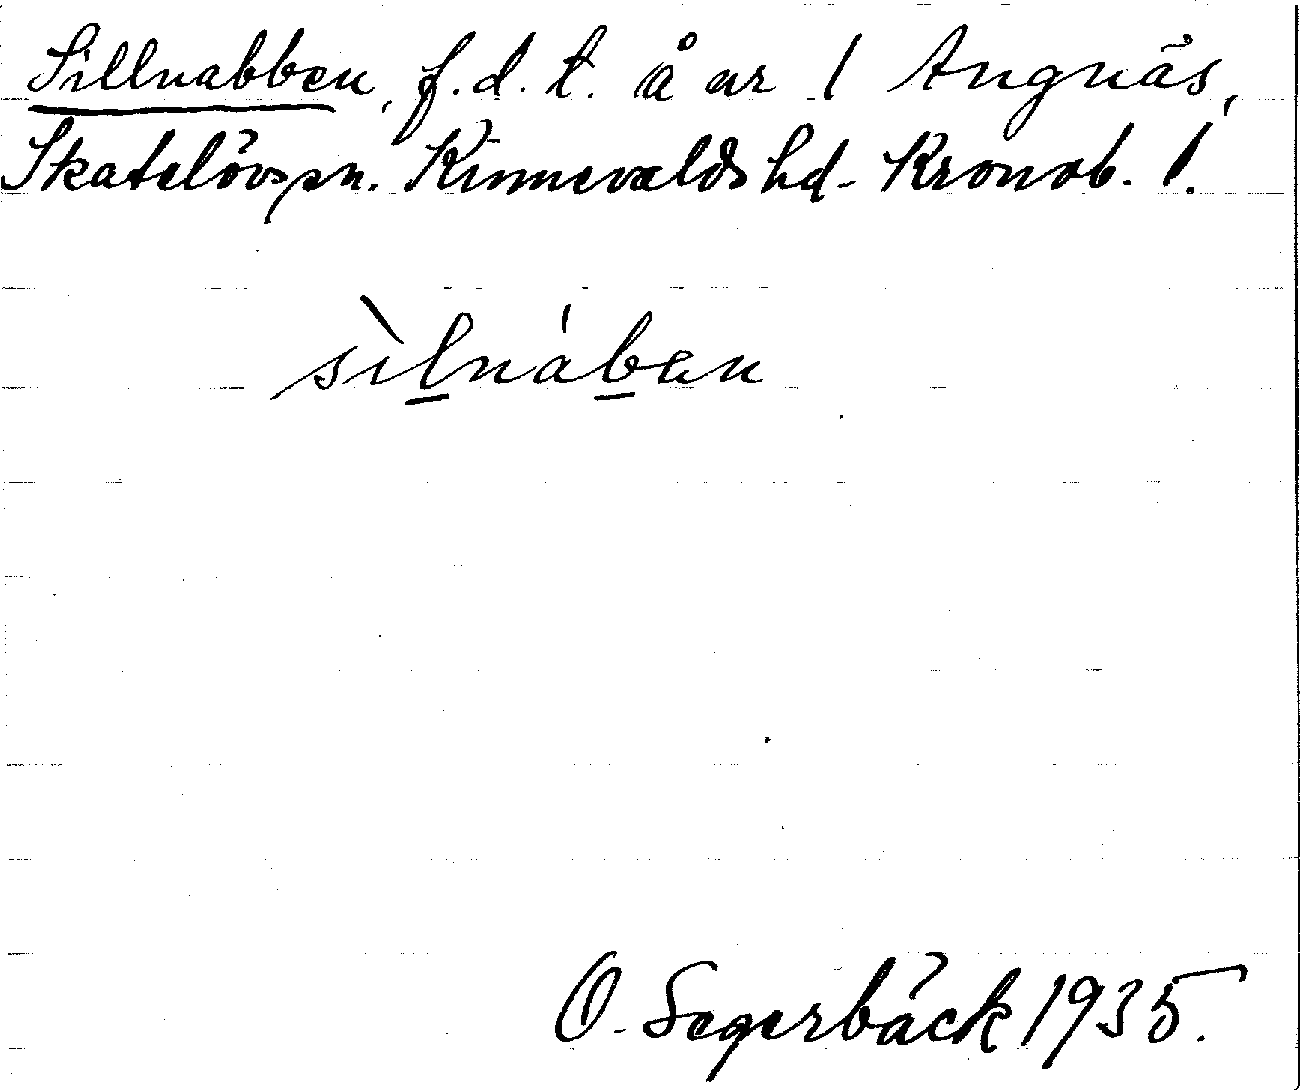 Sillnabben, f.d.t. å nr 1 Angnäs,
Skatelövs sn. Kinnevalds hd. Kronob. l.
sìlnáben
O. Segerbäck 1935.